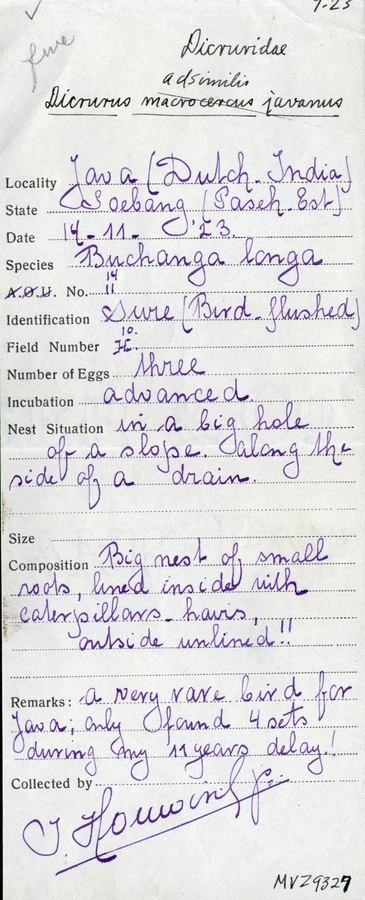 7-23
five
Dicruridae
adsimilis
Dicrurus macrocercus javanus
Locality Java (Dutch-India)
State Soebang (Paseh-Est)
Date 14-11-'23.
Species Buchanga longa
14
A.O.U. No. 11
Identification Sure (Bird-flushed)
10.
Field Number
Number of Eggs three
Incubation advanced.
Nest Situation in a big hole
of a slope. along the
side of a drain.
Size
Composition Big nest of small
roots, lined inside with
caterpillars-hairs,
outside unlined!!
Remarks: a very rare bird for
Java; only found 4 sets
during my 11 years delay!
Collected by
MVZ9327